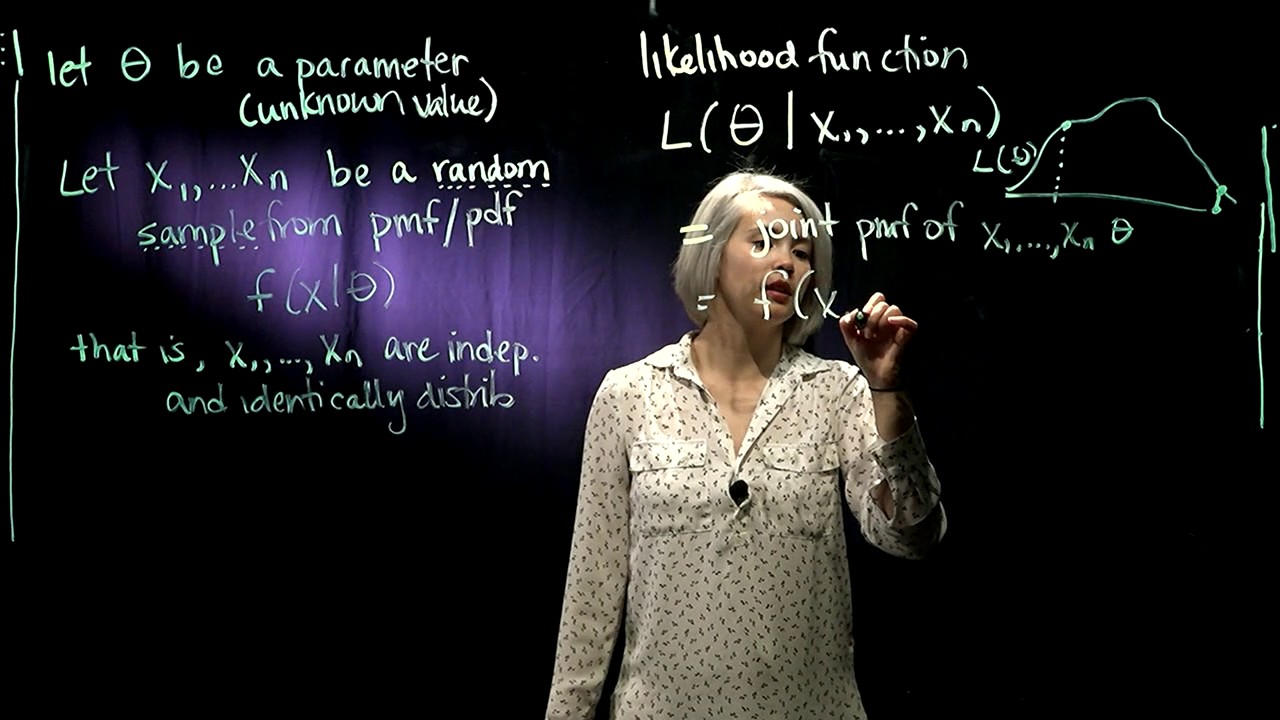 let θ be a parameter
(unknown value)
Let X₁,...Xₙ be a random
sample from pmf/pdf
f(x|θ)
that is, X₁,...,Xₙ are indep.
and identically distrib
likelihood function
L(θ | X₁,...,Xₙ)
L(θ)
= joint pmf of X₁,...,Xₙ θ
= f(x